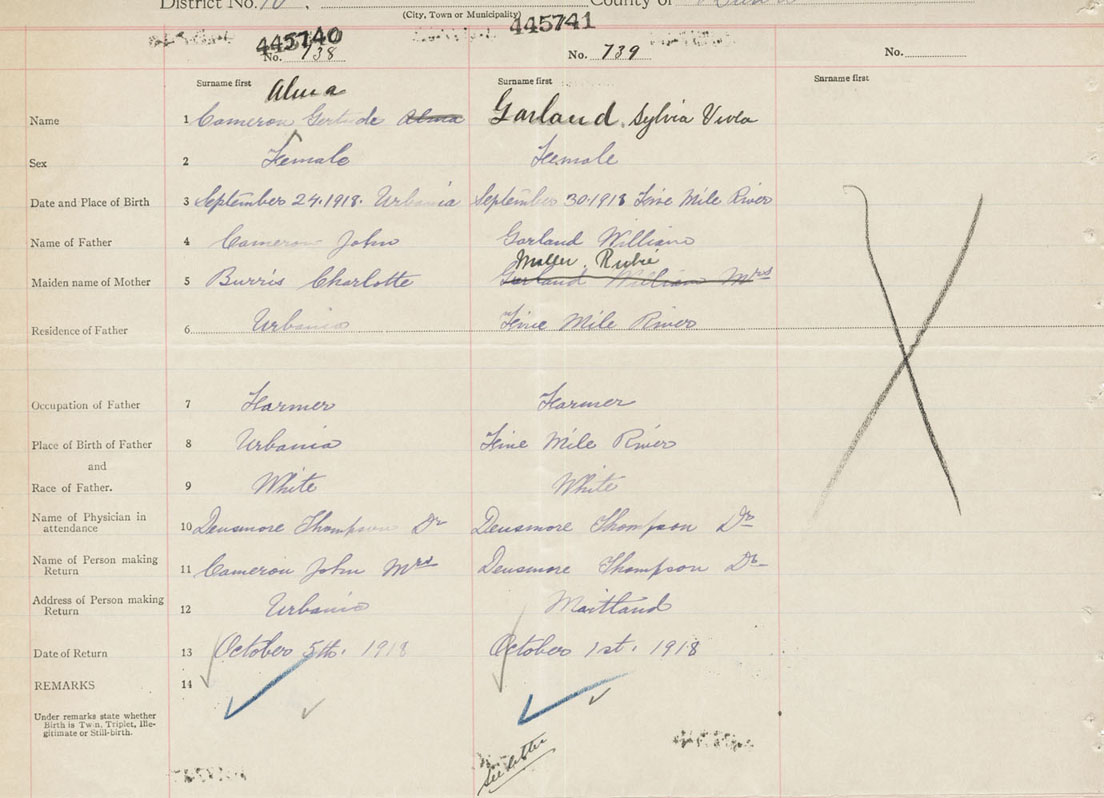 District No. 10, County of
(City, Town or Municipality)
445740 445741
No. 738 No. 739 No.
Surname first Surname first Surname first
Alma
Name 1 Cameron Gertrude Alma Garland, Sylvia Viola
Sex 2 Female Female
Date and Place of Birth 3 September 24.1918. Urbania September 30.1918 Five Mile River
Name of Father 4 Cameron John Garland William
Rubie
Maiden name of Mother 5 Burris Charlotte Garland William Mrs
Residence of Father 6 Urbania Five Mile River
Occupation of Father 7 Farmer Farmer
Place of Birth of Father 8 Urbania Five Mile River
and
Race of Father. 9 White White
Name of Physician in
attendance 10 Densmore Thompson Dr Densmore Thompson Dr
Name of Person making
Return 11 Cameron John Mrs Densmore Thompson Dr
Address of Person making
Return 12 Urbania Maitland
Date of Return 13 October 5th. 1918 October 1st. 1918
REMARKS 14
Under remarks state whether
Birth is Twin, Triplet, Ille-
gitimate or Still-birth.
See letter